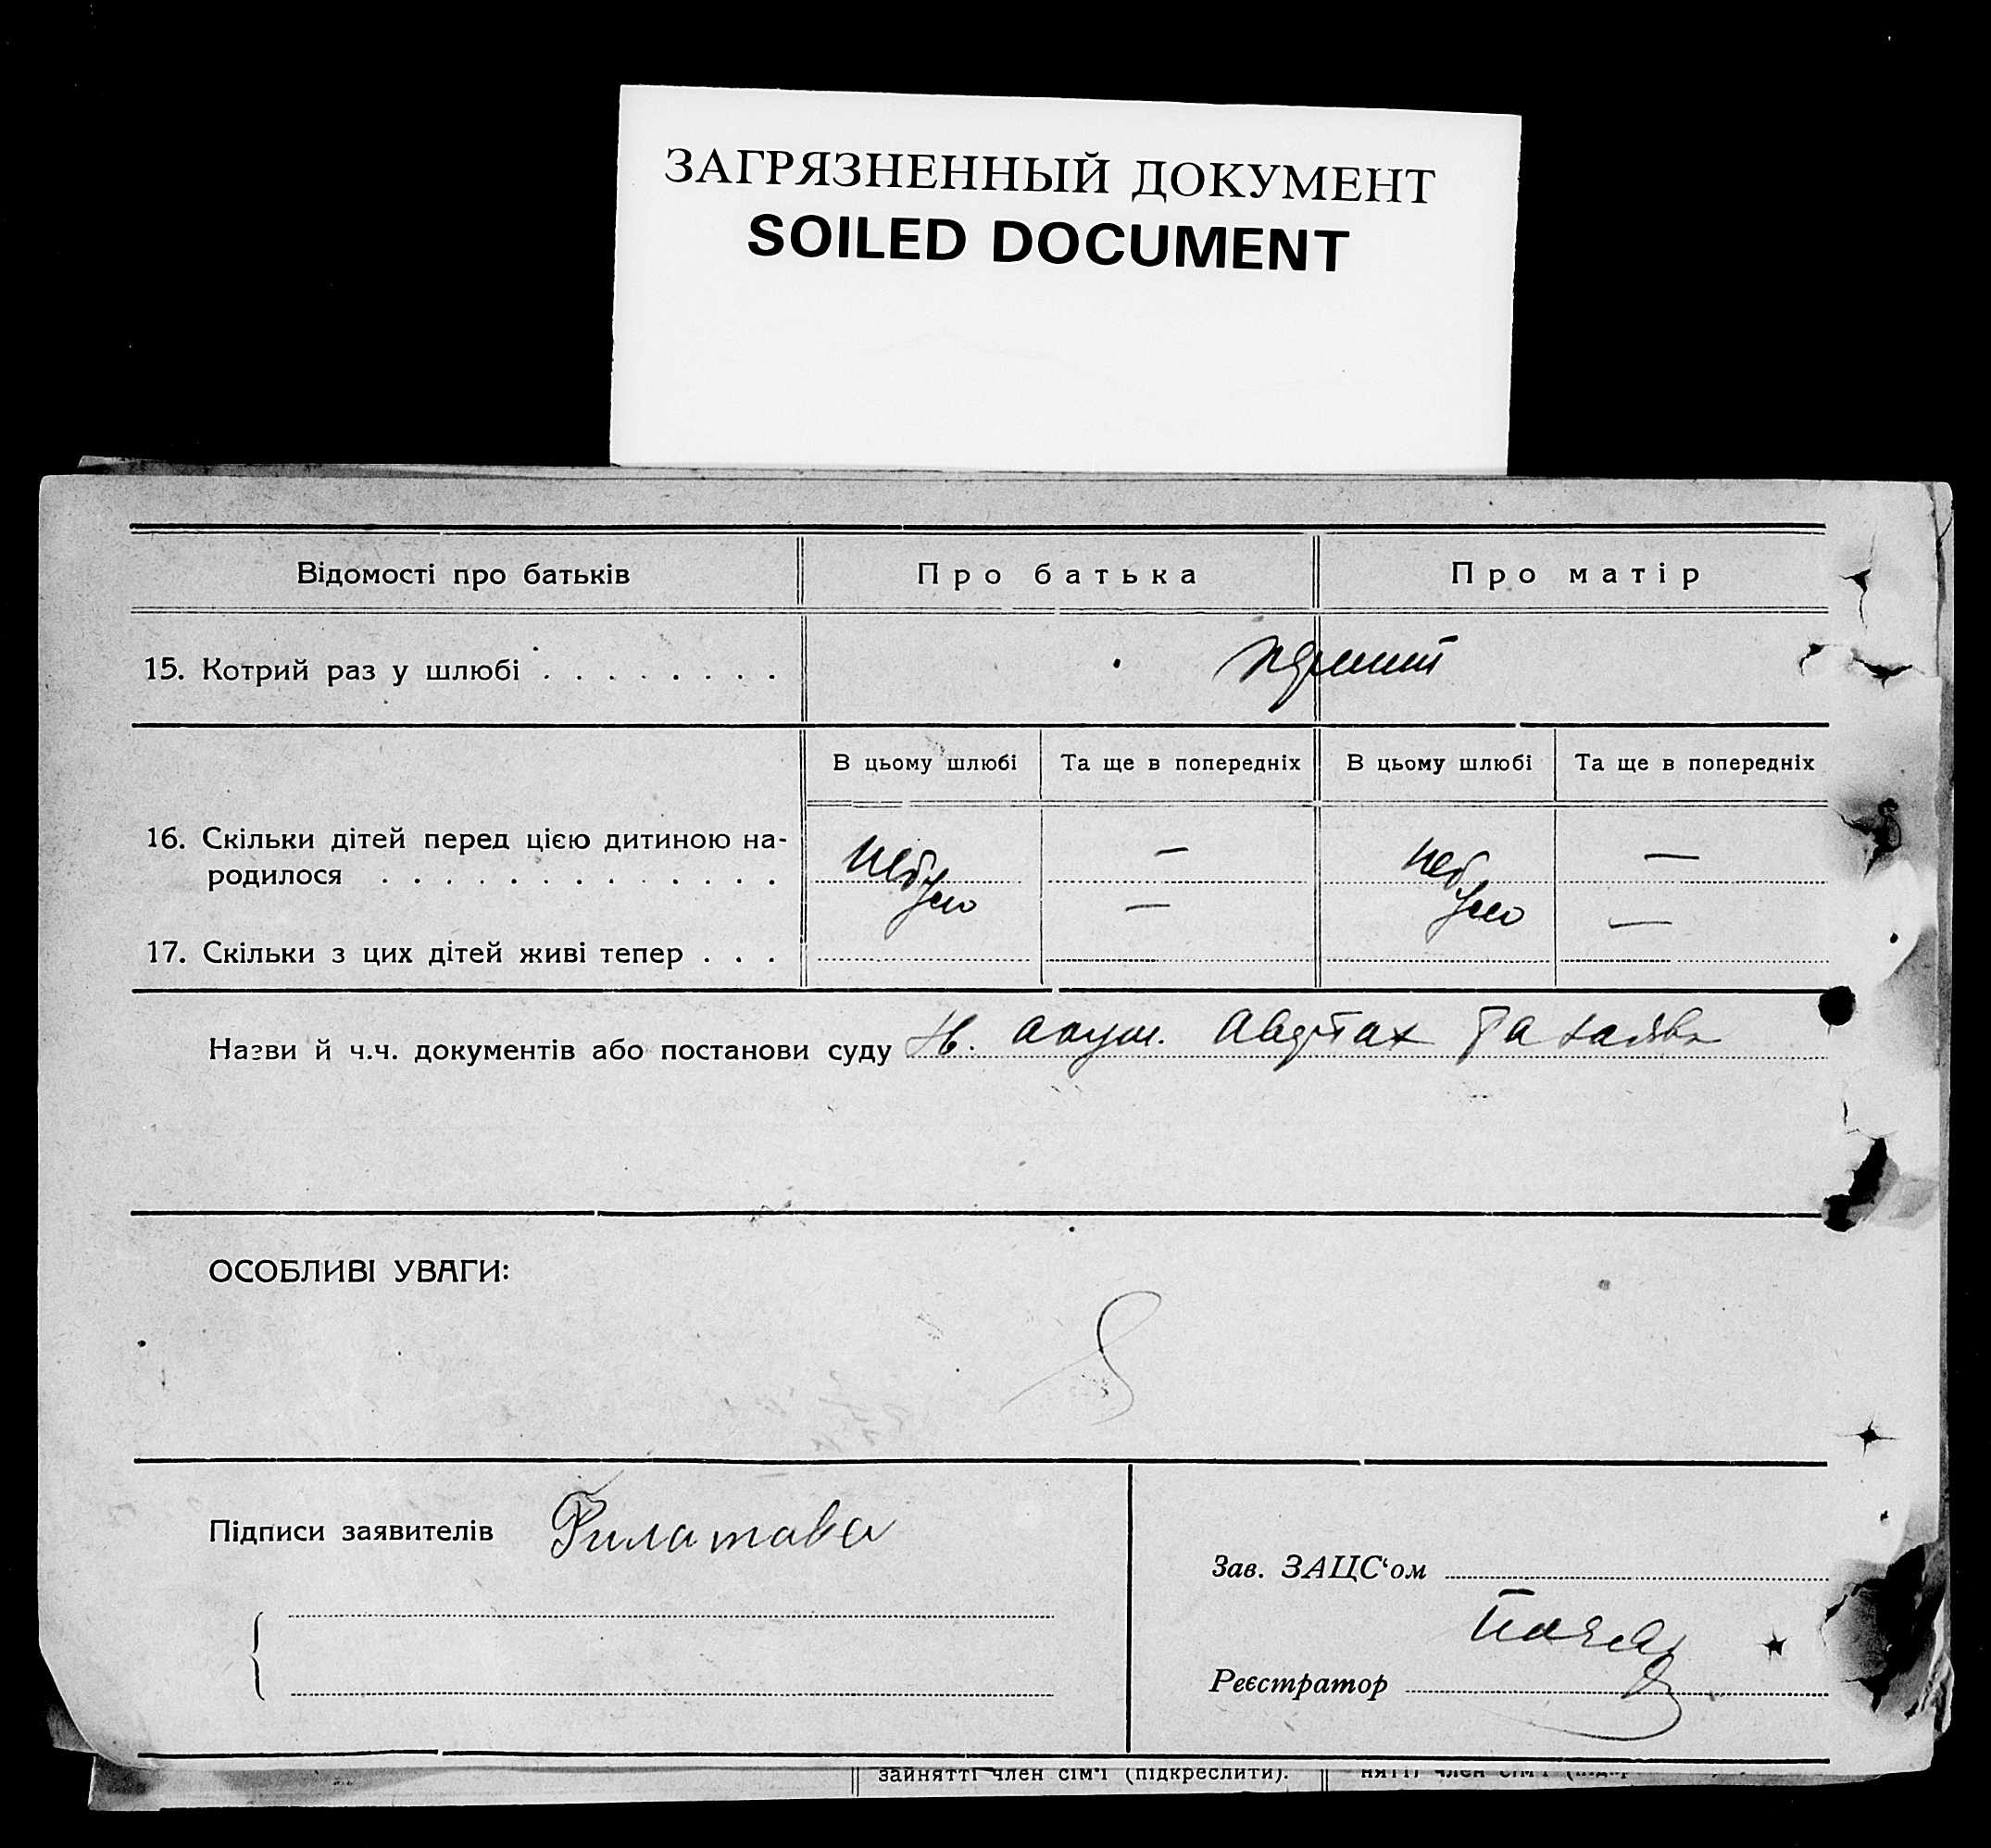 ЗАГРЯЗНЕННЫЙ ДОКУМЕНТ
SOILED DOCUMENT
Відомості про батьків Про батька Про матір
15. Котрий раз у шлюбі . . . . . . . .
В цьому шлюбі Та ще в попередніх В цьому шлюбі Та ще в попередніх
16. Скільки дітей перед цією дитиною на-
родилося . . . . . . . . . . . . . не — не —
було — було —
17. Скільки з цих дітей живі тепер . . .
Назви й ч.ч. документів або постанови суду та заява
ОСОБЛИВІ УВАГИ:
Підписи заявителів Филатова
Зав. ЗАЦС‘ом
Реєстратор
зайнятті член сім'ї (підкреслити).